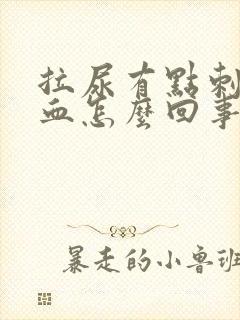 拉尿有點刺
血怎麼回事
暴走的小魯班